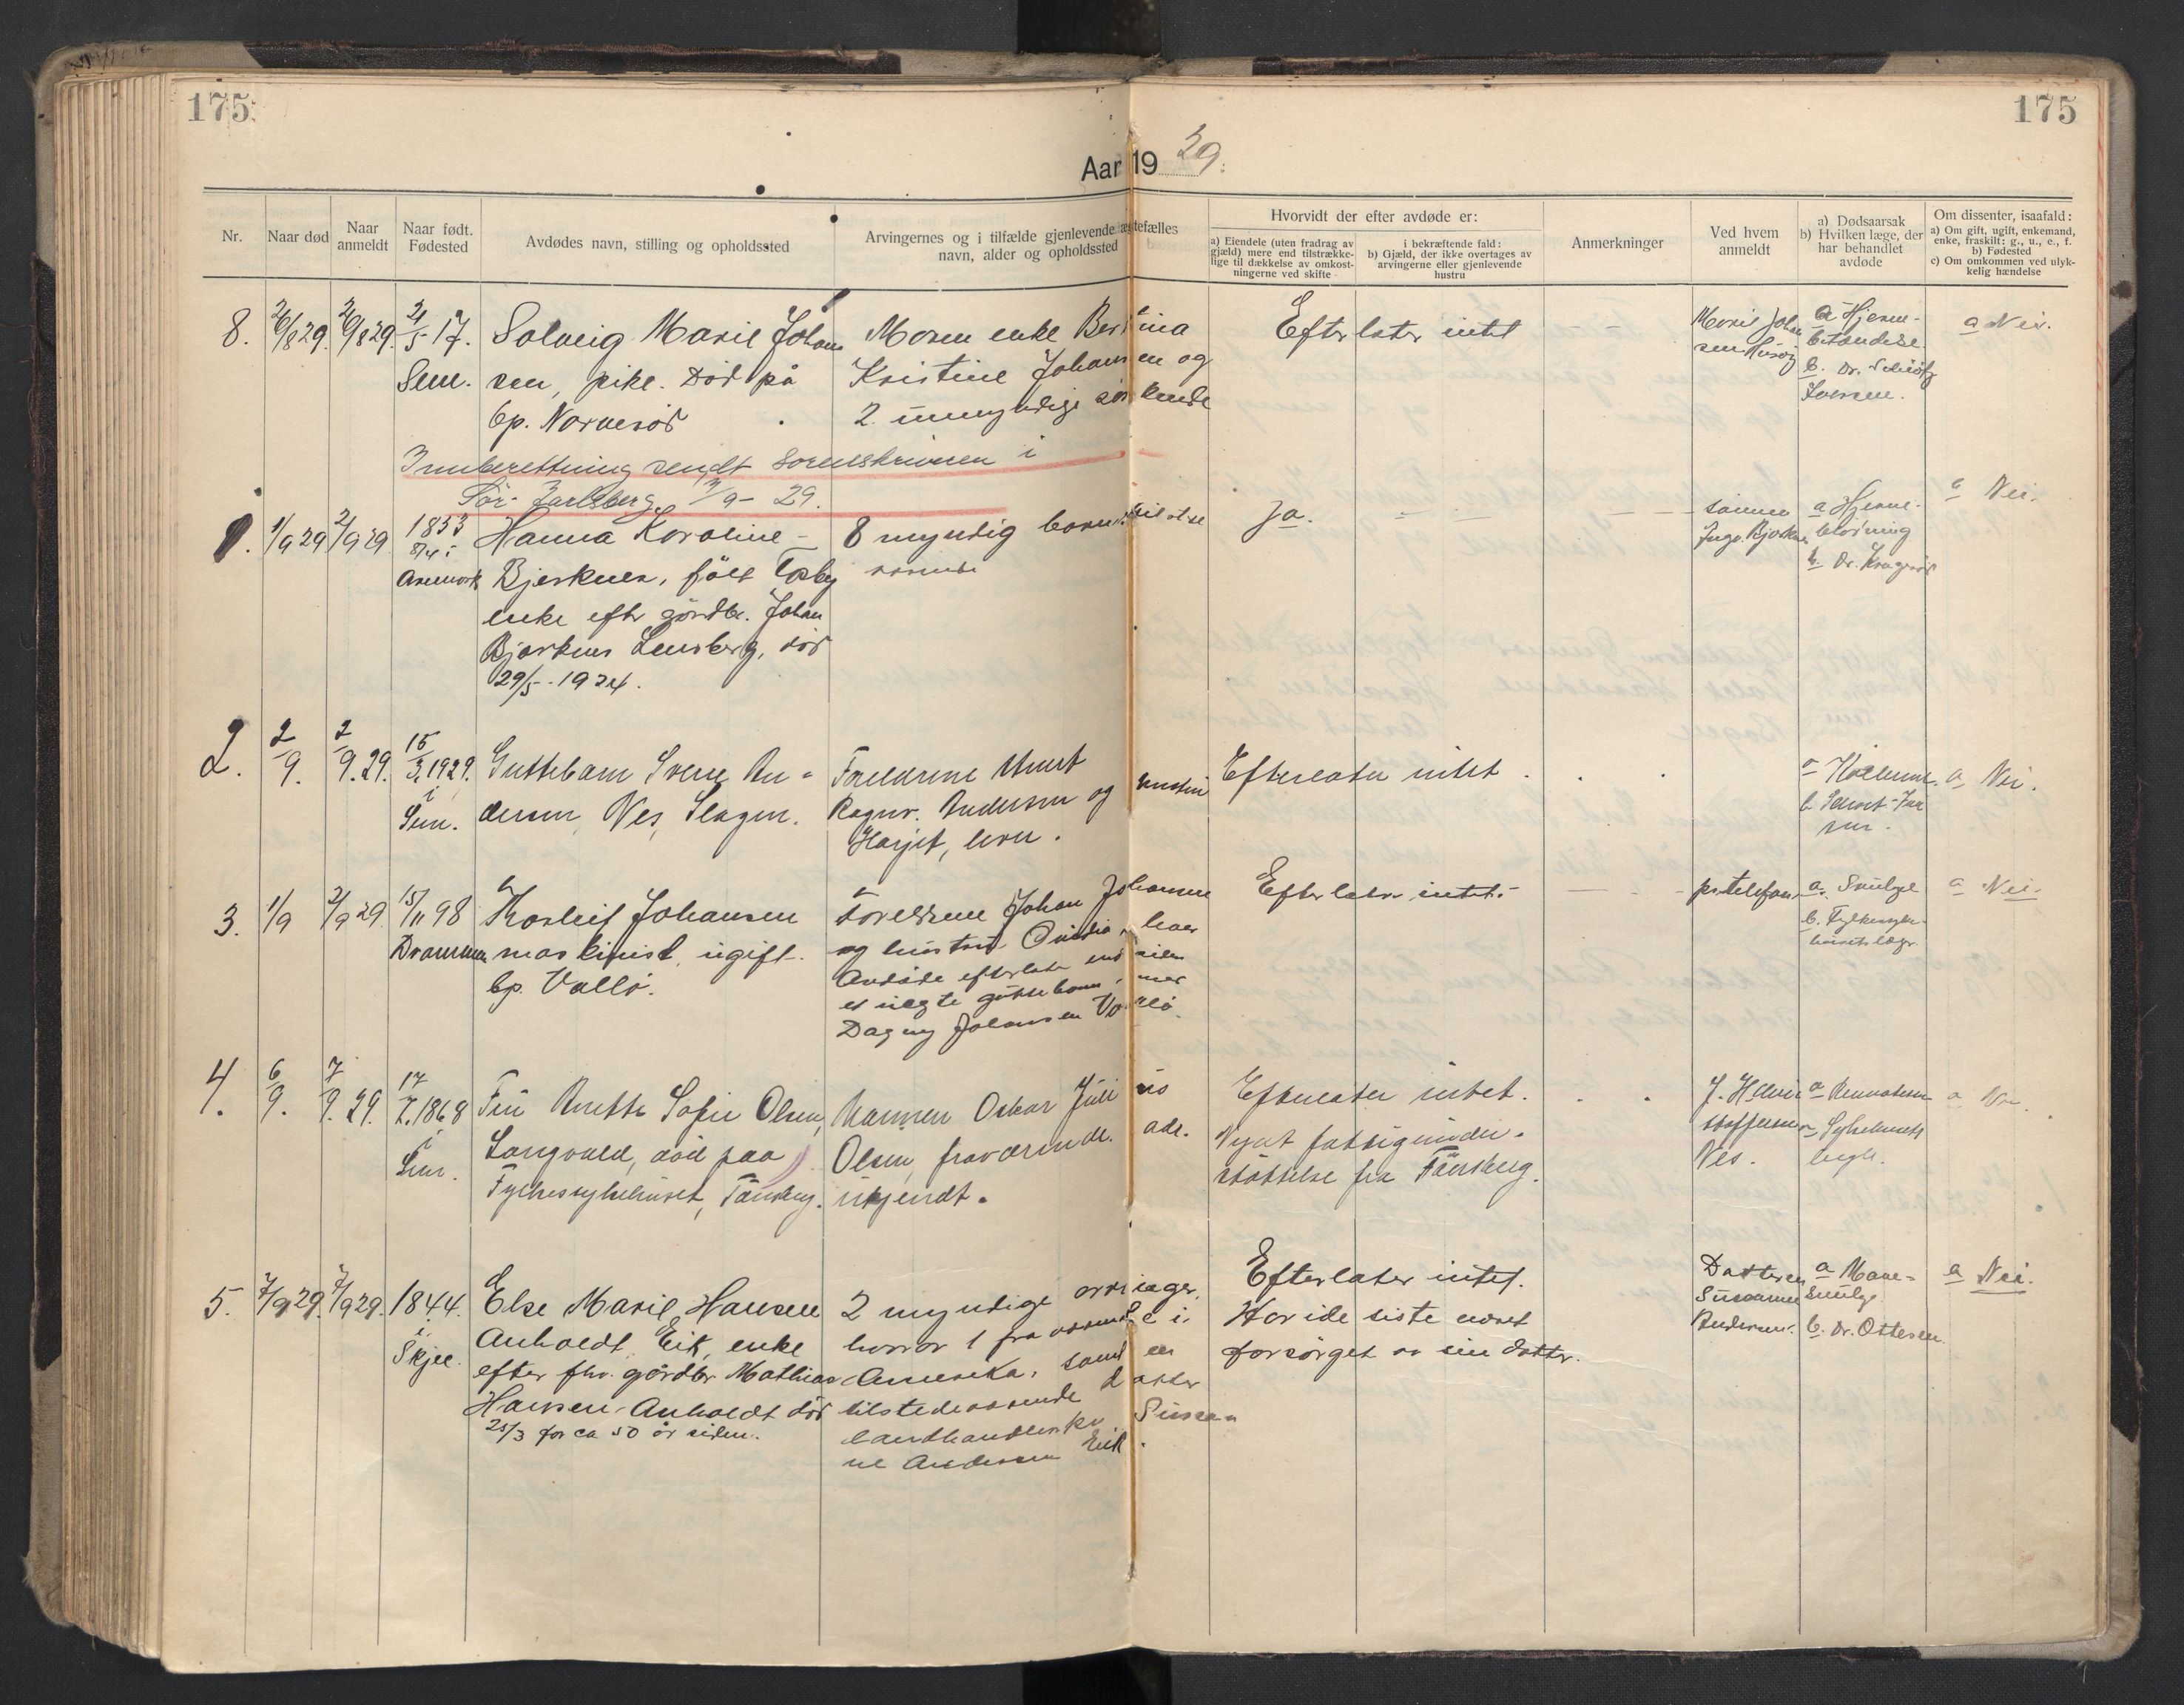 175
175
Aar 19 29.
Nr.
Naar død
Naar
anmeldt
Naar født.
Fødested
Avdødes navn, stilling og opholdssted
Arvingernes og i tilfælde gjenlevende ægtefælles
navn, alder og opholdssted
Hvorvidt der efter avdøde er:
a) Eiendele (uten fradrag av
gjæld) mere end tilstrække-
lige til dækkelse av omkost-
ningerne ved skifte
i bekræftende fald:
b) Gjæld, der ikke overtages av
arvingerne eller gjenlevende
hustru
Anmerkninger
Ved hvem
anmeldt
a) Dødsaarsak
b) Hvilken læge, der
har behandlet
avdøde
Om dissenter, isaafald:
a) Om gift, ugift, enkemand,
enke, fraskilt: g., u., e., f.
b) Fødested
c) Om omkommen ved ulyk-
kelig hændelse
8.
26/8 29.
29/8 29.
21/5 17.
Sem.
Solveig Marie Johan
sen, pike. Død på
bp. Narverød
Moren enke Bertina
Kristine Johansen og
2 umyndige søskende
Efterlater intet
Marie Johan
sen Husøy
a Hjerne-
betændelse.
b. Dr. Schiøtz
Iversen.
a Nei.
Innberettning sendt sorenskriveren i
Sør-Jarlsberg 2/9-29.
1.
1/9 29
2/9 29
1853
8/4 i
Aremark
Hanna Karoline
Bjerknes, født Tosby
enke eftr gårdbr. Johan
Bjerknes Lensberg, død
29/5-1924.
8 myndig barn tilste
værende
Ja.
sønnen
Ingv. Bjerknes
a Hjerne-
blødning
b. Dr. Kragerød
a Nei.
2.
2/9.
2/9. 29.
15/3. 1929.
i
Sem.
Guttebarn Sverre An-
dersen, Nes, Slagen.
Forældrene
Ragnv. Andersen og hustru
Harjet, lever.
Efterlater intet.
a Nei.
3.
1/9
2/9 29
15/11 98
Drammen
Thorleif Johansen
maskinist, ugift.
bp. Vallø.
Foreldrene Johan Johansen
og hustru Ovidia, lever
Avdøde efterlater end viden
et uegte guttebarn, mor
Dagny Johansen Vallø.
Efterlater intet.
pr. telefon
a. Svulst
b. Fylkessyke-
husets læge.
a Nei.
4.
6/9.
7/9. 29.
17/7. 1868
i
Sem.
Fru Anette Sofie Olsen,
Langvald, død paa
Fylkessykehuset, Tønsberg.
Mannen Oskar Julius
Olsen, fraværende. adr.
ukjendt.
Efterlater intet.
Nydt fattigunder-
støttelse fra Tønsberg.
Nes.
a Nei.
5.
7/9 29.
7/9 29.
1844.
i
Skjee.
Else Marie Hansen
Anholdt, Eik, enke
efter fhv. gårdbr. Mathias
Hansen-Anholdt død
25/3 for ca 50 år siden.
2 myndige arvinger,
hvorav 1 fraværende i
Amerika, samt en
tilstedeværende datter
landhandlerske Susan
ne Andersen Eik.
Efterlater intet.
Har i de siste været
forsørget av sin datter.
Datteren
Susanne
Andersen.
a Mave-
svulst.
b. Dr. Ottesen.
a Nei.